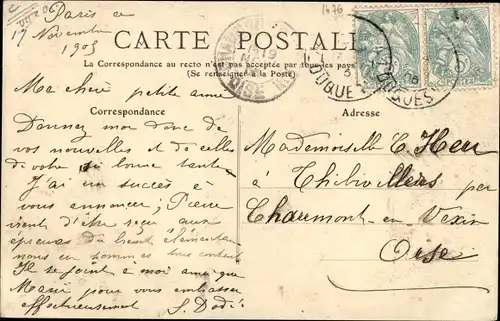 Paris ce
17 Novembre
1905
CARTE POSTALE
La Correspondance au recto n'est pas acceptée par tous les pays
(Se renseigner à la Poste)
Ma chère petite amie
Correspondance
Donnez moi donc de
vos nouvelles et de celles
de votre si bonne tante
J'ai un succès à
vous annoncer; Pierre
vient d'être reçu aux
épreuves du brevet élémentaire
nous en sommes
Il se joint à moi ainsi que
Marie pour vous embrasser
affectueusement S. Dodé
Adresse
Mademoiselle C. Heu
à Thibivillers par
Chaumont-en-Vexin
Oise
1676
OISE
DUQUESNE